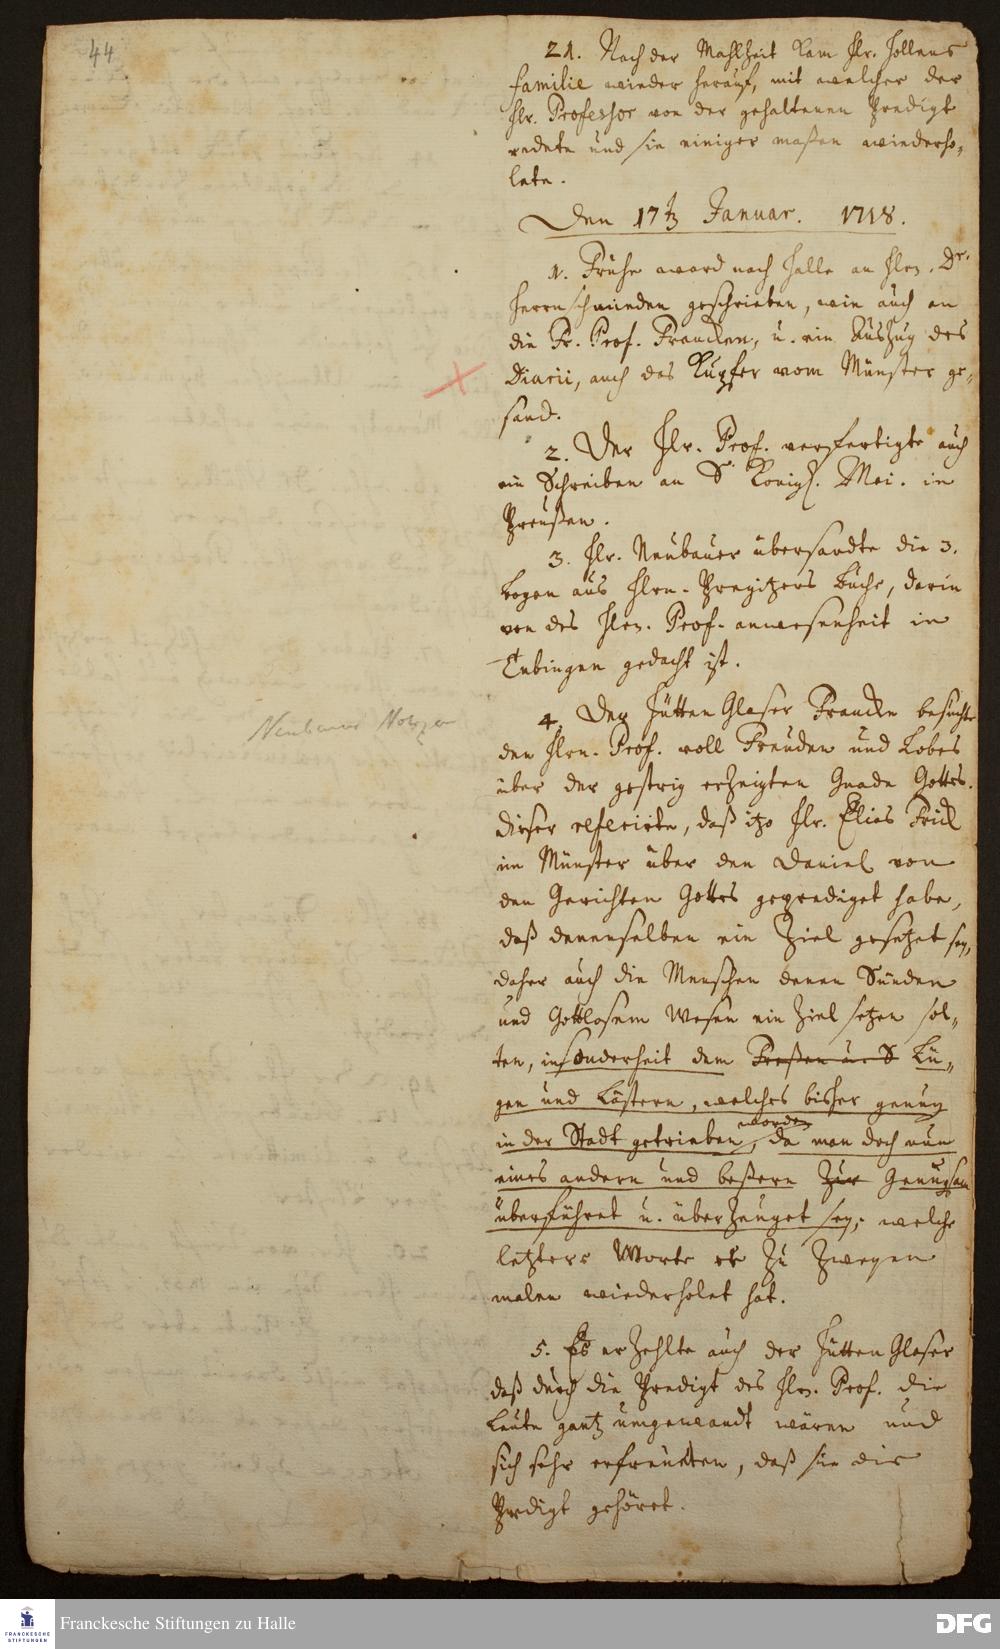 44
21. Nach der Mahlzeit kam Hr. Hollens
familie wieder herauf, mit welcher der
Hr. Professor von der gehaltenen Predigt
redete und sie einiger maßen wiederho-
lete.
Den 17t Januar. 1718.
1. Frühe ward nach Halle an Hrn. Dr.
Herrnschmieden geschrieben, wie auch an
die Fr. Prof. Francken, u. ein Auszug des
Diarii, auch das Kupfer vom Münster ge-
sand.
2. Der Hr. Prof. verfertigte auch
ein Schreiben an S. Königl. Mai. in
Preußen.
3. Hr. Neubauer übersandte die 3.
bogen aus Hrn. Pregitzers Buche, darin
von des Hrn. Prof. anwesenheit in
Tubingen gedacht ist.
Neubauers Notizen
4. Der Hütten Glaser Francke besuchte
den Hrn. Prof. voll Freuden und Lobes
über der gestrig erzeigten Gnade Gottes.
dieser referirte, daß itzo Hr. Elias Frick
im Münster über den Daniel von
den Gerichten Gottes geprediget habe,
daß denenselben ein Ziel gesetzet sey,
daher auch die Menschen denen Sünden
und Gottlosem Wesen ein Ziel setzen sol-
ten, insonderheit dem Lü-
gen und Lästern, welches bisher genug
in der Stadt getrieben worden, da man doch nun
eines andern und beßern zur Genugsam
überführet u. überzeuget sey; welche
letztere Worte er zu zweyen
malen wiederholet hat.
5. Es erzehlte auch der Hütten Glaser
daß durch die Predigt des Hrn. Prof. die
Leute gantz umgewandt wären und
sich sehr erfreueten, daß sie die
Predigt gehöret.
FRANCKESCHE
STIFTUNGEN
Franckesche Stiftungen zu Halle
DFG